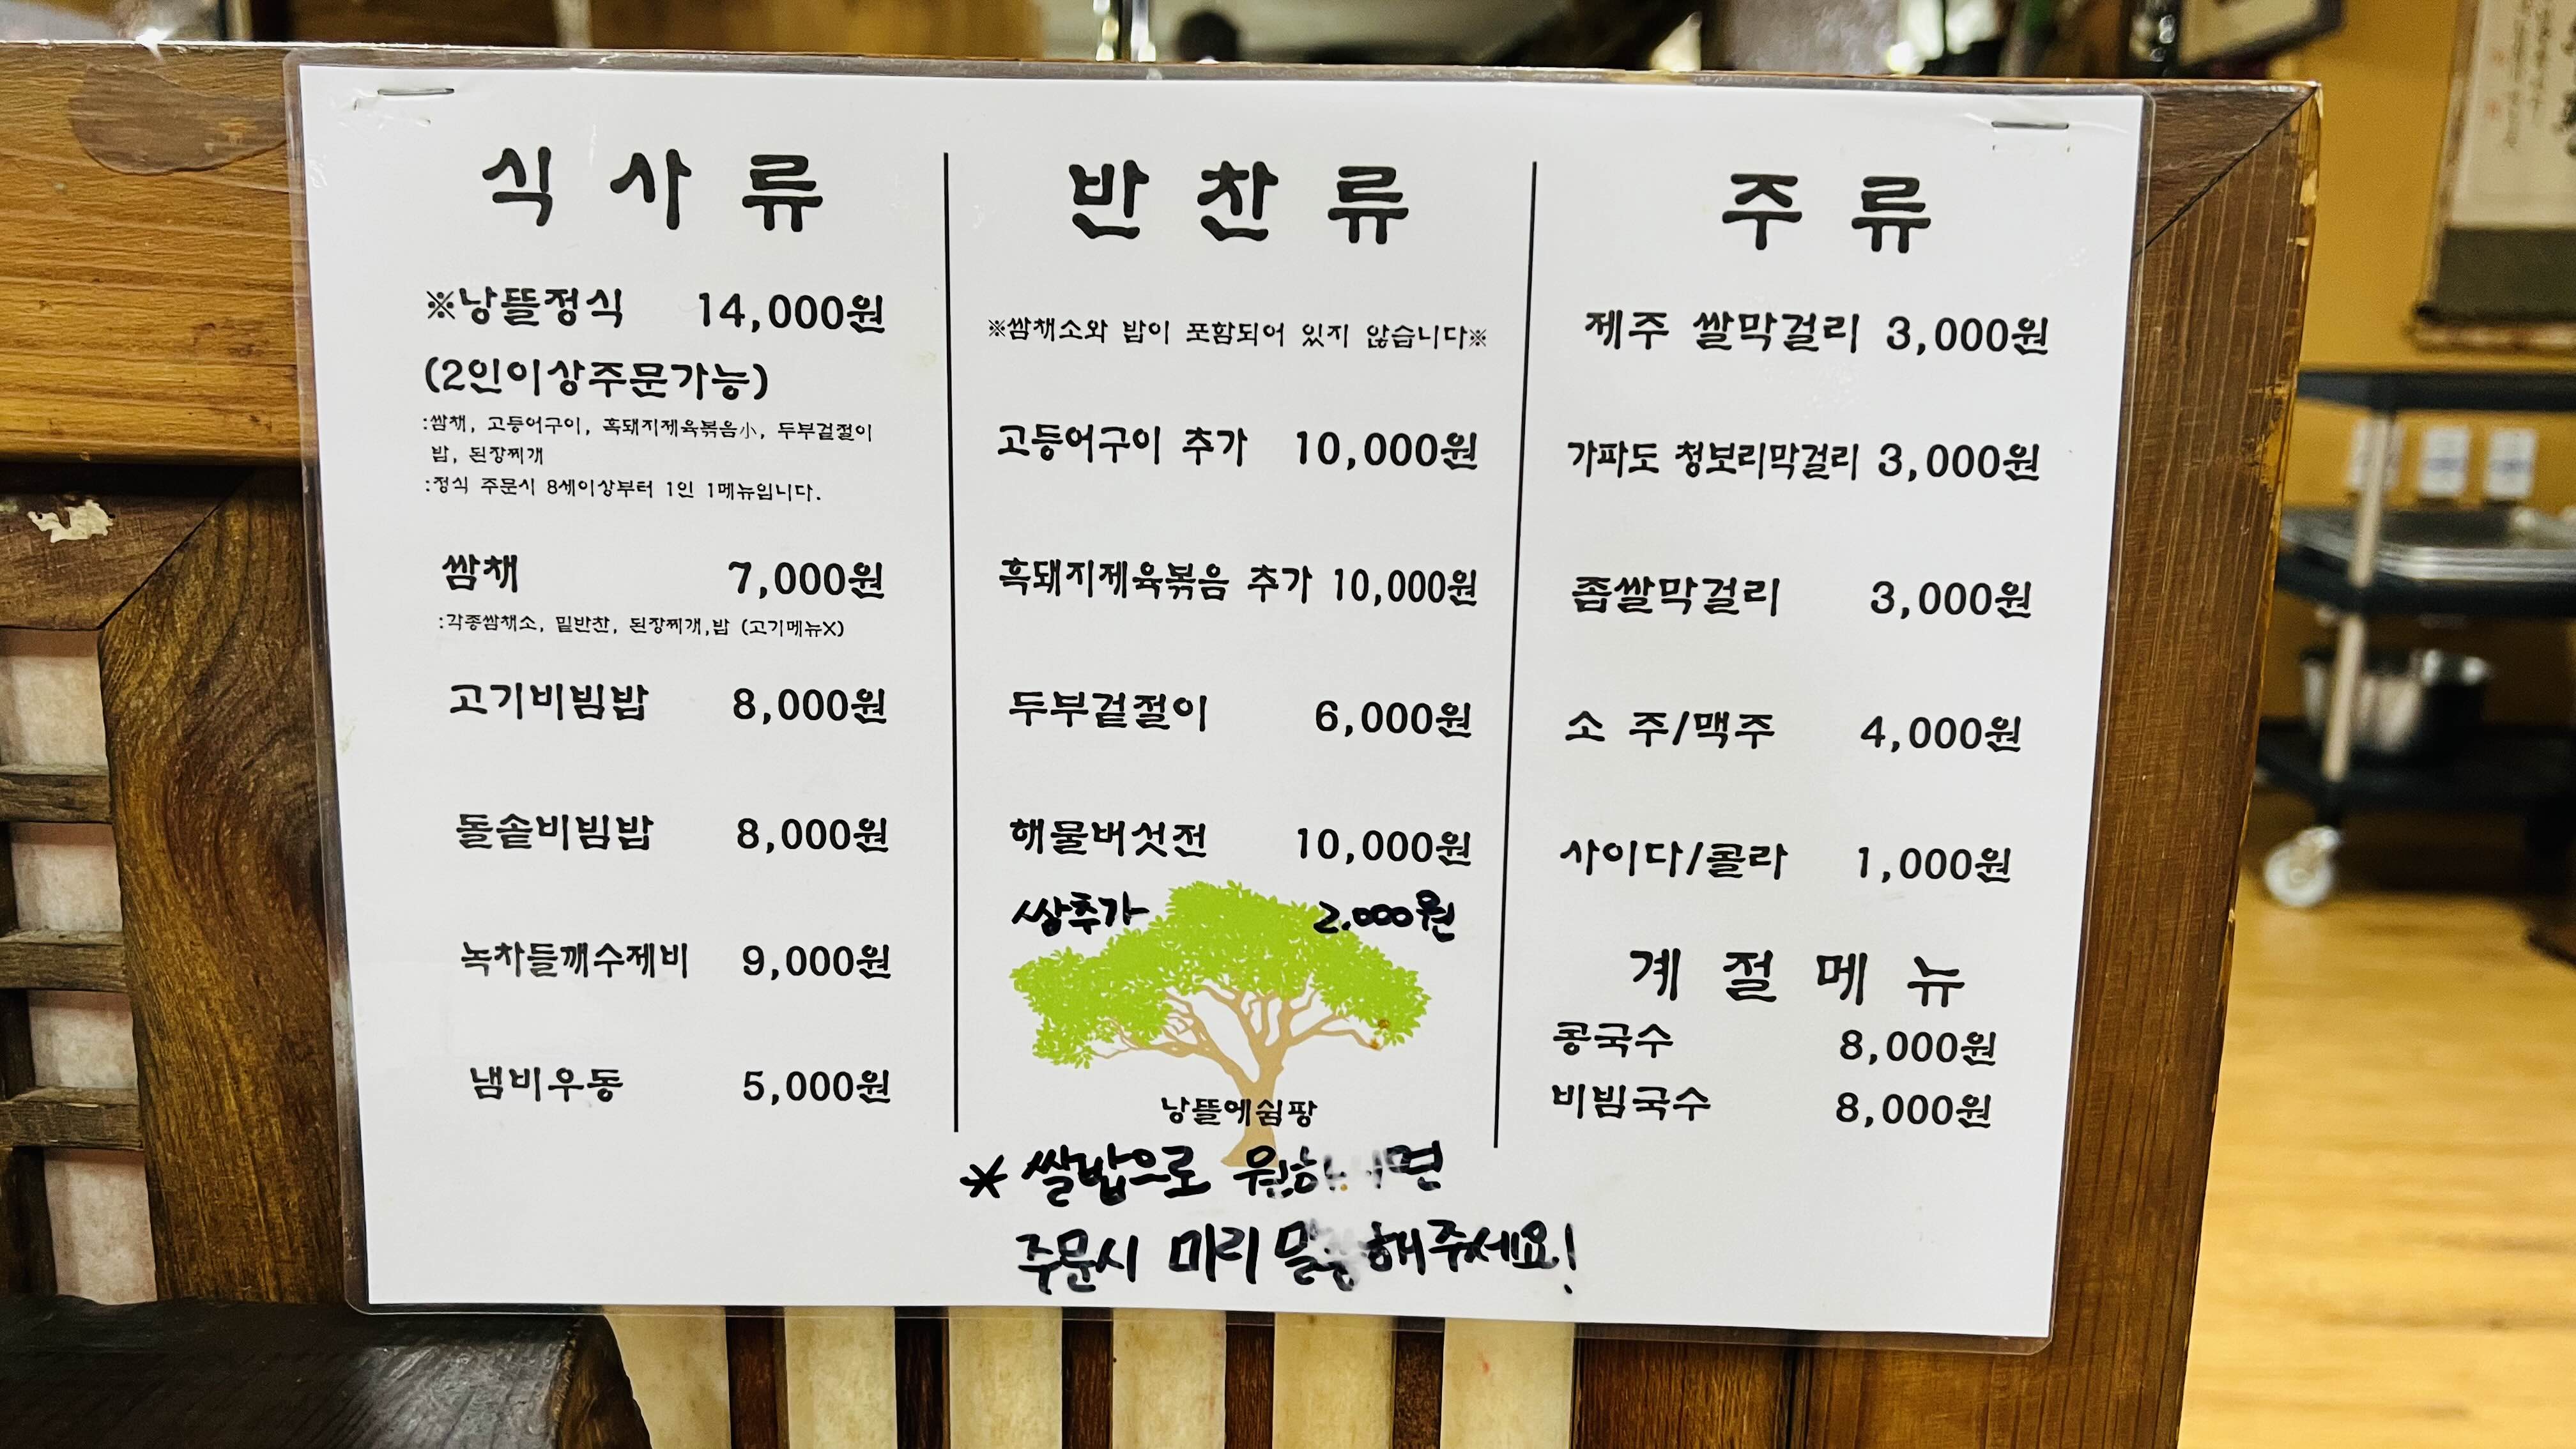 식사류
※낭뜰정식 14,000원
(2인이상주문가능)
:쌈채, 고등어구이, 흑돼지제육볶음小, 두부겉절이
밥, 된장찌개
:정식 주문시 8세이상부터 1인 1메뉴입니다.
쌈채 7,000원
:각종쌈채소, 밑반찬, 된장찌개,밥 (고기메뉴X)
고기비빔밥 8,000원
돌솥비빔밥 8,000원
녹차들깨수제비 9,000원
냄비우동 5,000원
반찬류
※쌈채소와 밥이 포함되어 있지 않습니다※
고등어구이 추가 10,000원
흑돼지제육볶음 추가 10,000원
두부겉절이 6,000원
해물버섯전 10,000원
쌈추가 2.000원
낭뜰에쉼팡
주류
제주 쌀막걸리 3,000원
가파도 청보리막걸리 3,000원
좁쌀막걸리 3,000원
소 주/맥주 4,000원
사이다/콜라 1,000원
계절메뉴
콩국수 8,000원
비빔국수 8,000원
* 쌀밥으로
주문시 미리 말씀해주세요!